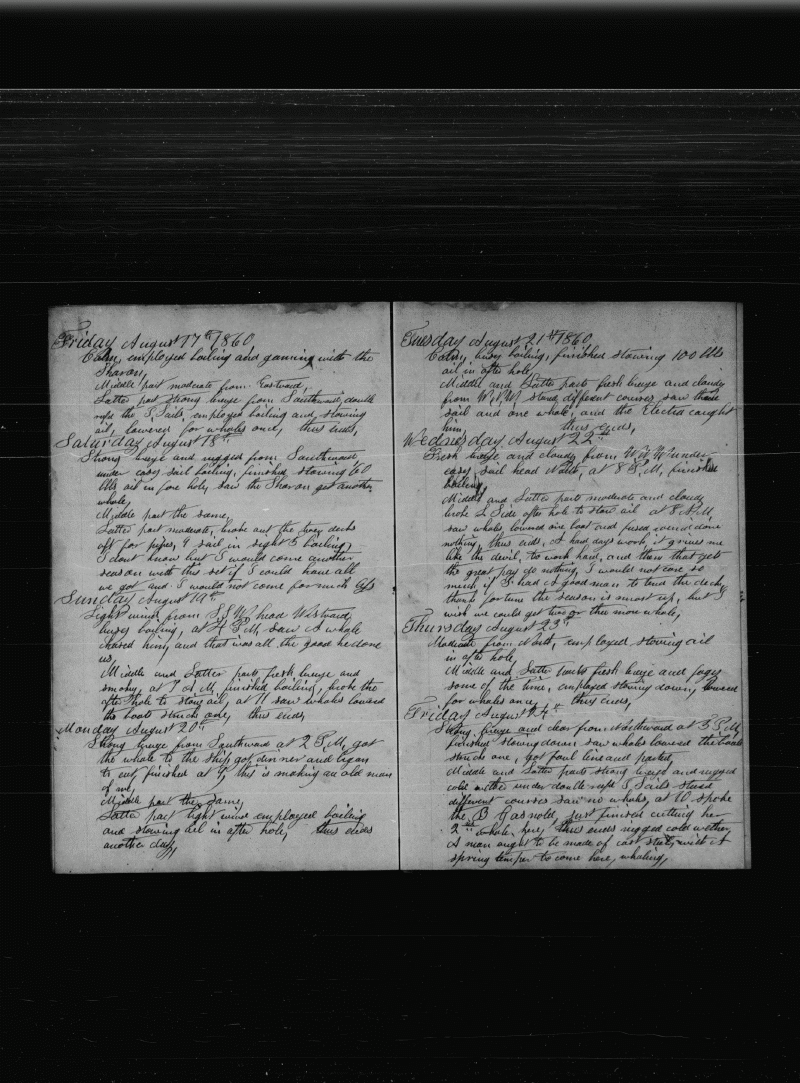 Friday August 17th 1860
Calm, employed boiling and gamming with the
Sharon,
Middle part moderate from Eastward,
Latter part strong breeze from Southward, double
reefd the T, Sails employed boiling and stowing
oil, lowered for whales once, thus ends,
Saturday August 18th
Strong breeze and rugged from Southward
under easy sail boiling, finished stowing 60
bbls oil in fore hole, saw the Sharon get another
whale,
Middle part the same,
Latter part moderate, broke out the lower decks
aft for pipes, 9 sail in sight 5 boiling,
I dont know but I would come another
season with this set if I could have all
we got and I would not come for much less
Sunday August 19th
Light winds from S,S,W, head Westward,
busy boiling, at 4 P,M, saw A whale
chased him, and that was all the good he done
us,
Middle and Latter parts fresh breeze and
smokey, at 7 A,M, finished boiling, broke the
after hole to stow oil, at 11 saw whales lowered
the boats struck one, thus ends,
Monday August 20th
Strong breeze from Southward at 2 P,M, got
the whale to the ship, got dinner and began
to cut, finished at 9 this is making an old man
of me,
Middle part the same,
Latter part light wind employed boiling
and stowing oil in after hole, thus ends
another day,
Tuesday August 21st 1860
Calm, busy boiling, finished stowing 100 bbls
oil in after hole,
Middle and Latter parts fresh breeze and cloudy
from W,N,W, steerd different courses saw three
sail and one whale, and the Elected caught
him, thus ends,
Wednesday August 22nd
Fresh breeze and cloudy from W,N,W under
easy sail head North, at 8 P,M, finished
boiling,
Middle and Latter parts moderate and cloudy
broke 2 Side after hole to stow oil at 8 A,M,
saw whales lowered one boat and fused round done
nothing, thus ends, A hard days work it grieves me
like the devil, to work hard, and them that gets
the great pay do nothing, I would not care so
much if I had A good man to tend the deck,
thank fortune the season is most up, but I
wish we could get two or three more whales,
Thursday August 23rd
Moderate from North, employed stowing oil
in after hole,
Middle and Latter parts fresh breeze and foggy
some of the time, employed stowing down, lowered
for whales once, thus ends,
Friday August 24th
Strong breeze and clear from Northward at 3 P,M,
finished stowing down saw whales lowered the boats
struck one, got foul line and parted,
Middle and Latter parts strong breeze and rugged
cold wether under double reefd T Sails steerd
different courses saw no whales, at 10 spoke
the B Gasnold, just finished cutting her
2nd whale, here, thus ends rugged cold wether,
A man ought to be made of cast steel, with A
spring temper to come here, whaling,